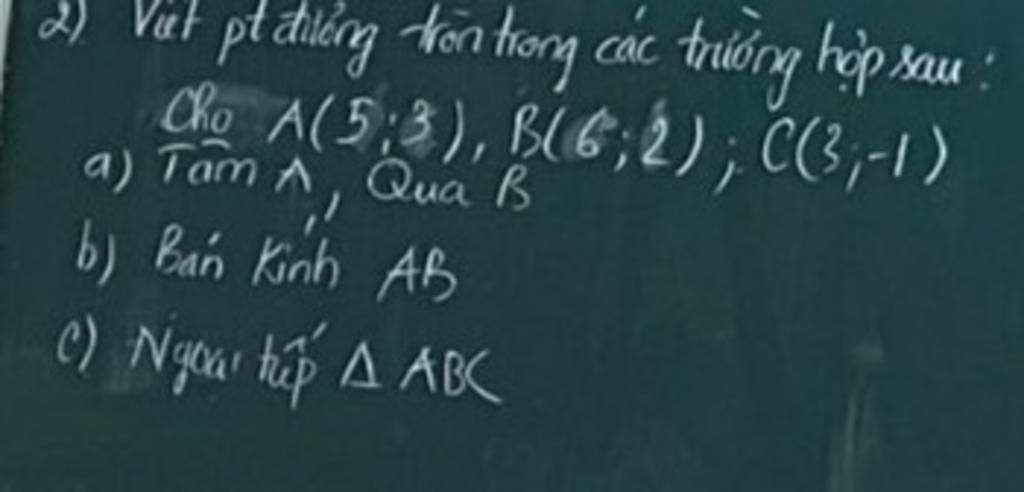 2) Viết pt đường tròn trong các trường hợp sau:
Cho A(5;3), B(6;2); C(3;-1)
a) Tâm A, Qua B
b) Bán Kính AB
c) Ngoại tiếp Δ ABC